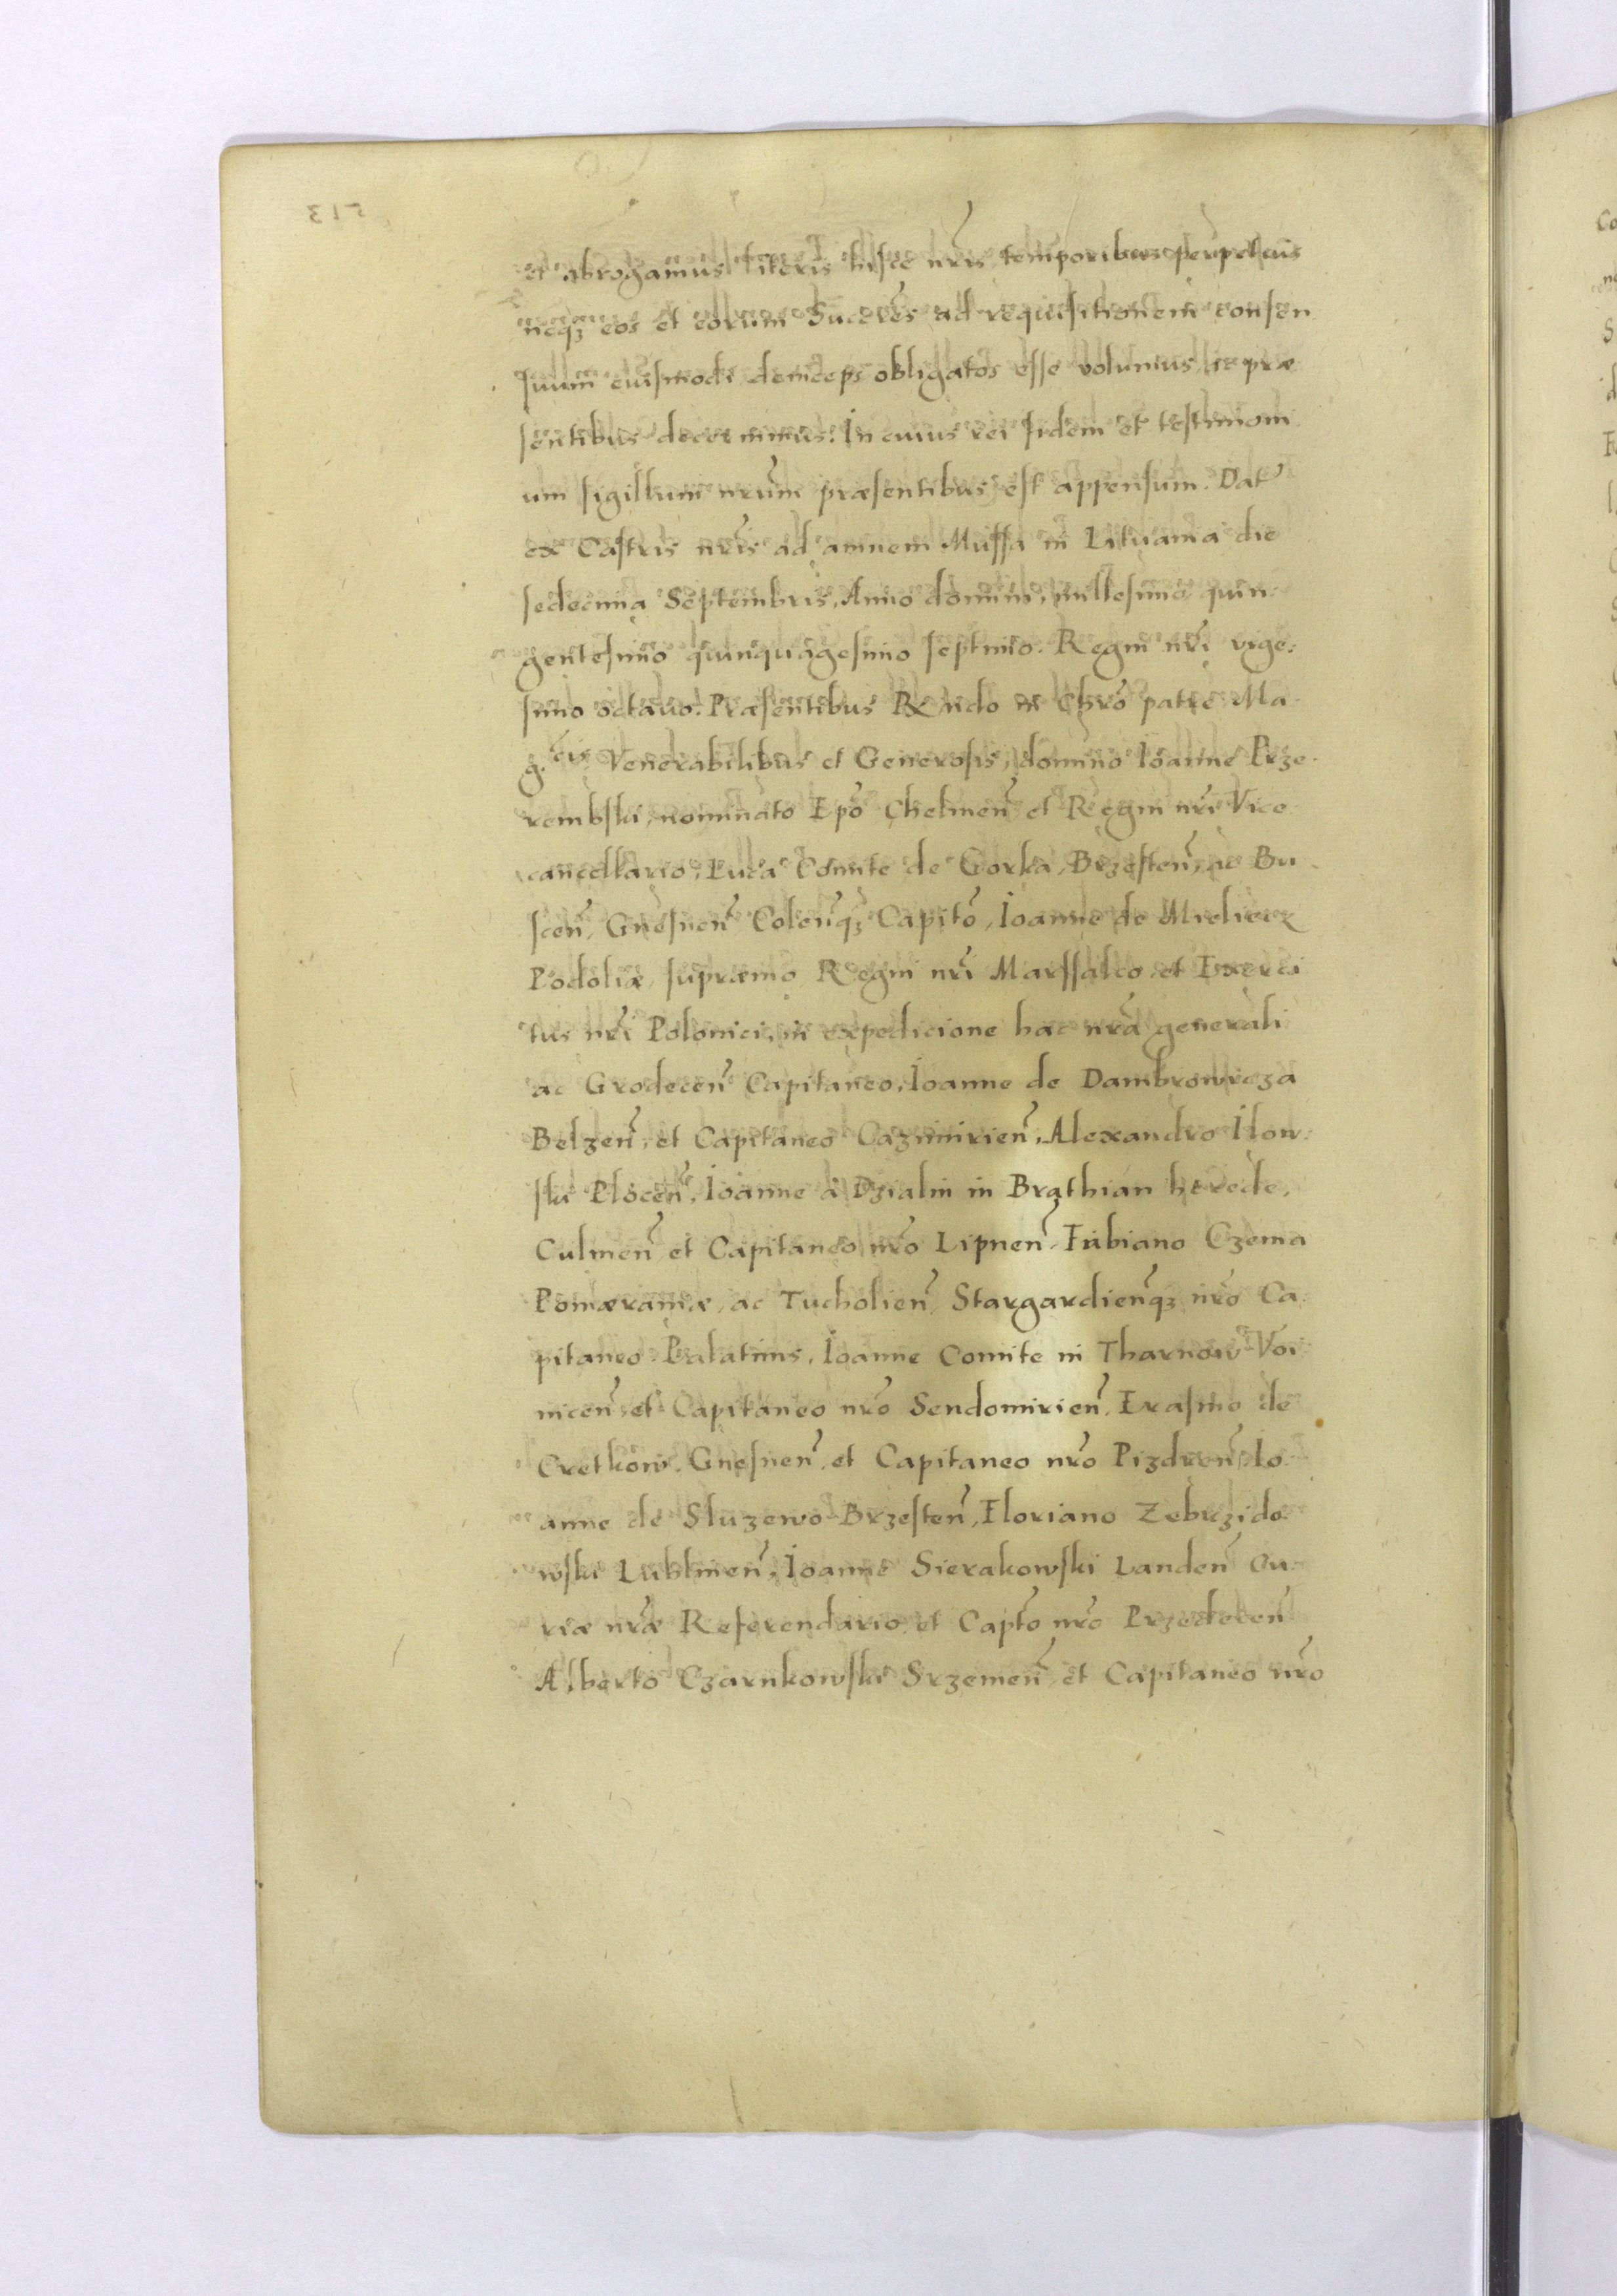 et abrogamus literis hisce nr̃is temporibus perpetuis
neqȝ eos et eorum Succr̃es ad requisitionem consen
suum euismodi deinceps obligatos esse volumus, ac præ
sentibus decernimus. In cuius rei fidem et testimoni
um sigillum nrũm præsentibus est appensum. Dat̃
ex Castris nr̃is ad amnem Mussa in Lituania die
sedecima Septembris, Anno domini, millesimo quin:
gentesimo quinquagesimo septimo. Regni nr̃i vige:
simo octauo. Præsentibus Rx̃ndo in Chrõ patre Ma
g.cis Venerabilibus et Generosis, domino Ioanne Prze
rembski, nominato Ep̃o Chelmen̄ et Regni nr̃i Vice
cancellario, Luca Comite de Gorka, Brzesten̄, ac Bu
scen̄, Gnesnen̄ Colen̄qȝ Capitõ, Ioanne de Mieliecz
Podoliæ, supræmo Regni nr̃i Marssalco, et Exerci
tus nr̃i Polonici, in expedicione hac nr̃a generali
ac Grodecen̄ Capitaneo, Ioanne de Dambrowicza
Belzen̄, et Capitaneo Cazimirien̄, Alexandro Ilow:
ski Plocen̄, Ioanne à Dzialin in Brathian herede,
Culmen̄ et Capitaneo nrõ Lipnen̄, Fabiano Czema
Pomæraniæ, ac Tucholien̄, Stargardien̄qȝ nrõ Ca:
pitaneo Palatinis, Ioanne Comite in Tharnow Voi
nicen̄, et Capitaneo nrõ Sendomirien̄, Erasmo de
Cretkow Gnesnen̄, et Capitaneo nrõ Pizdren̄, Io
anne de Sluzewo Brzesten̄, Floriano Zebrzido
wski Lublinen̄, Ioanne Sierakowski Landen̄ Cu
riæ nr̃æ Referendario, et Captõ nrõ Przedecen̄
Alberto Czarnkowski Srzemen̄, et Capitaneo nrõ